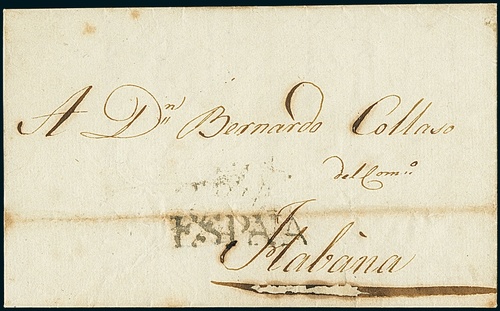 A Dⁿ Bernardo Collaso
del Com.º
ESPAÑA
Habana